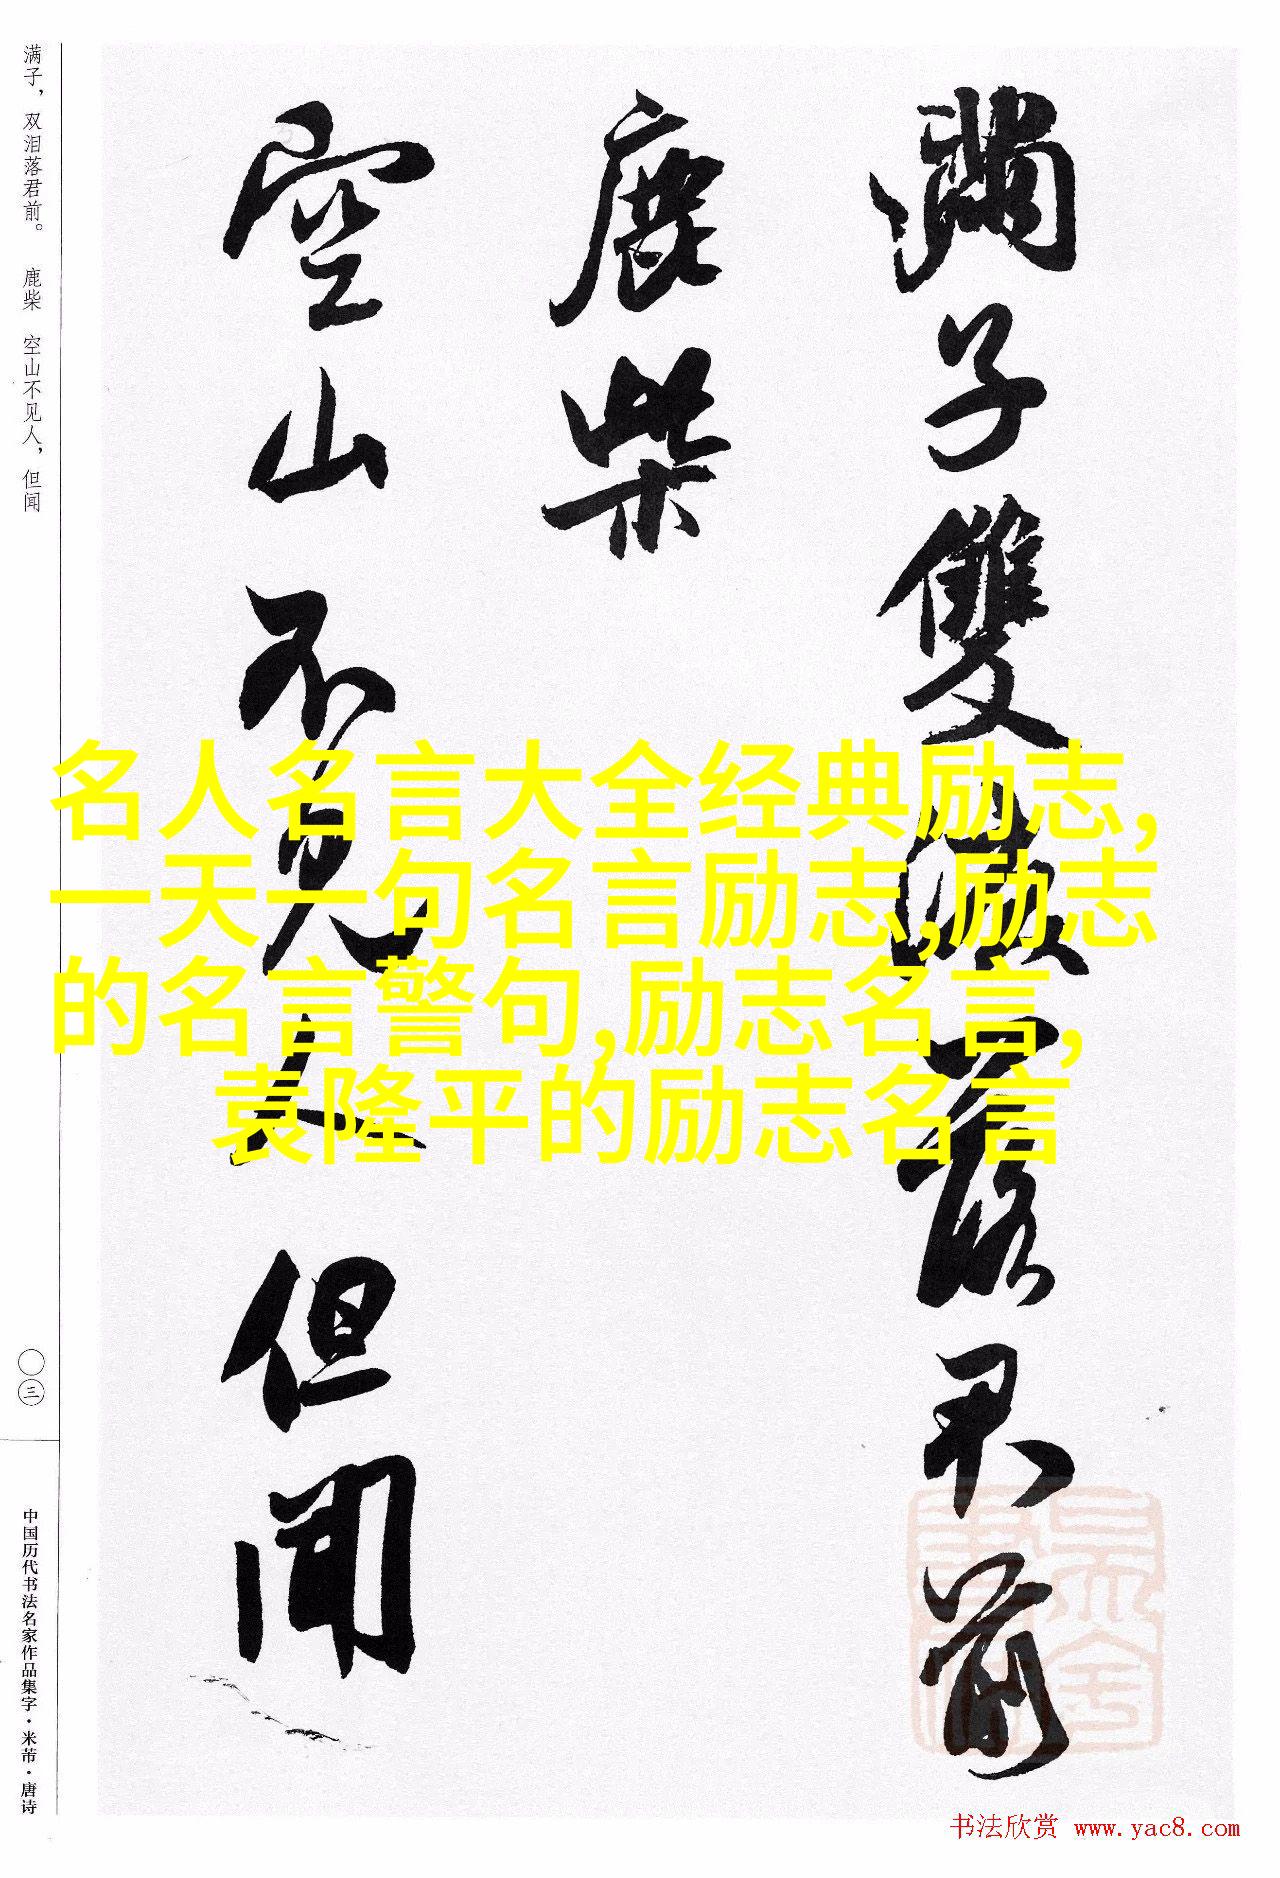 满子，双泪落君前。 鹿柴 空山不见人，但闻
滿子雙淚落君前
鹿柴
空山不見人但聞
名人名言大全经典励志,
一天一句名言励志,励志
的名言警句,励志名言,
袁隆平的励志名言
〇三
中国历代书法名家作品集字·米芾·唐诗
书法欣赏 www.yac8.com